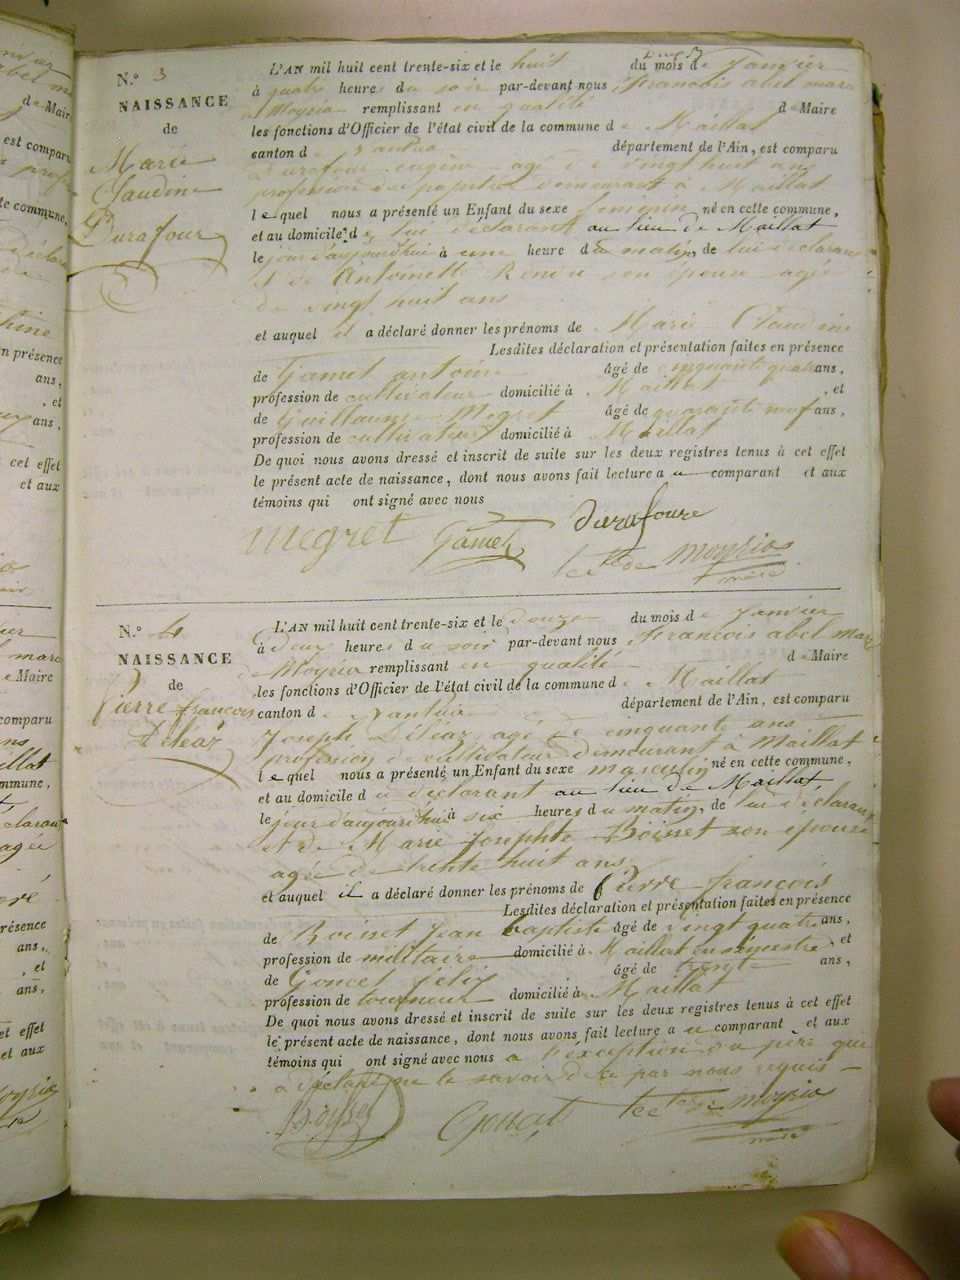 N.° 3
NAISSANCE
de
Marie
Claudine
Durafour
L'AN mil huit cent trente-six et le huit du mois de Janvier
à quatre heures du soir par-devant nous François abel marc
Moyria remplissant en qualité de Maire
les fonctions d'Officier de l'état civil de la commune de Maillat
canton de nantua département de l'Ain, est comparu
Durafour eugène agé de vingt huit ans
profession de demeurant à Maillat
lequel nous a présenté un Enfant du sexe feminin né en cette commune,
et au domicile de lui déclarant au lieu de Maillat
le jour d'aujourd'hui à une heure du matin, de lui déclarant
et de Antoinette son épouse agée
de vingt huit ans
et auquel il a déclaré donner les prénoms de Marie Claudine
Lesdites déclaration et présentation faites en présence
de Gamet antoine âgé de cinquante quatre ans,
profession de cultivateur domicilié à Maillat, et
de Guillaume Megret âgé de quarante neuf ans,
profession de cultivateur domicilié à Maillat
De quoi nous avons dressé et inscrit de suite sur les deux registres tenus à cet effet
le présent acte de naissance, dont nous avons fait lecture au comparant et aux
témoins qui ont signé avec nous
megret Gamet durafoure
le cte de moyria
maire
N.° 4
NAISSANCE
de
Pierre françois
Déléaz
L'AN mil huit cent trente-six et le douze du mois de Janvier
à deux heures du soir par-devant nous François abel marc
Moyria remplissant en qualité de Maire
les fonctions d'Officier de l'état civil de la commune de Maillat
canton de nantua département de l'Ain, est comparu
Joseph Déléaz agé de cinquante ans
profession de cultivateur demeurant à Maillat
lequel nous a présenté un Enfant du sexe masculin né en cette commune,
et au domicile du déclarant au lieu de Maillat,
le jour d'aujourd'hui à six heures du matin, de lui déclarant
et de Marie Josephte Boisset son épouse
agée de trente huit ans
et auquel il a déclaré donner les prénoms de Pierre françois
Lesdites déclaration et présentation faites en présence
de Jean baptiste âgé de vingt quatre ans,
profession de militaire domicilié à Maillat en semestre, et
de Goncet félix âgé de trente ans,
profession de tourneur domicilié à Maillat
De quoi nous avons dressé et inscrit de suite sur les deux registres tenus à cet effet
le présent acte de naissance, dont nous avons fait lecture au comparant, et aux
témoins qui ont signé avec nous a l'exception du père qui
a déclaré ne le savoir de ce par nous requis
le cte de moyria
maire